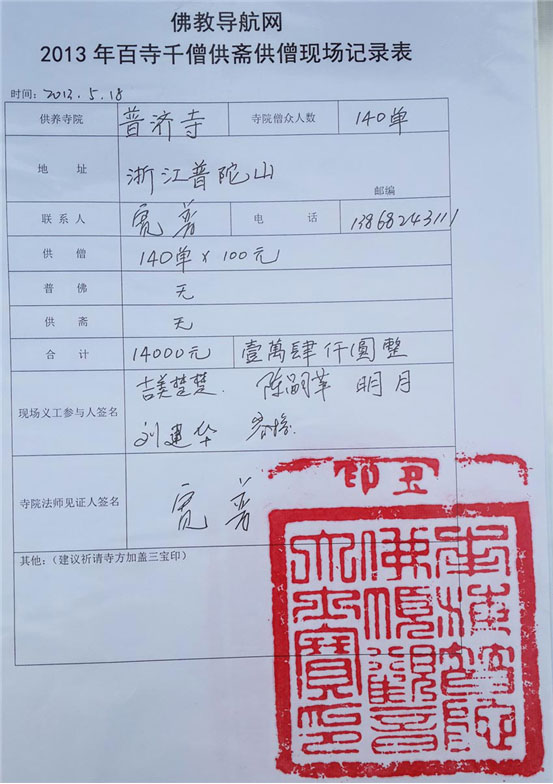 佛教导航网
2013年百寺千僧供斋供僧现场记录表
时间：2013.5.18
供养寺院 普济寺 寺院僧众人数 140单
地 址 浙江普陀山 邮编
联系人 宽普 电 话 13868243111
供 僧 140单×100元
普 佛 无
供 斋 无
合 计 14000元 壹萬肆仟圆整
现场义工参与人签名 吉美楚楚. 陈嗣苹 明月
刘建华
寺院法师见证人签名 宽普
其他：（建议祈请寺方加盖三宝印）